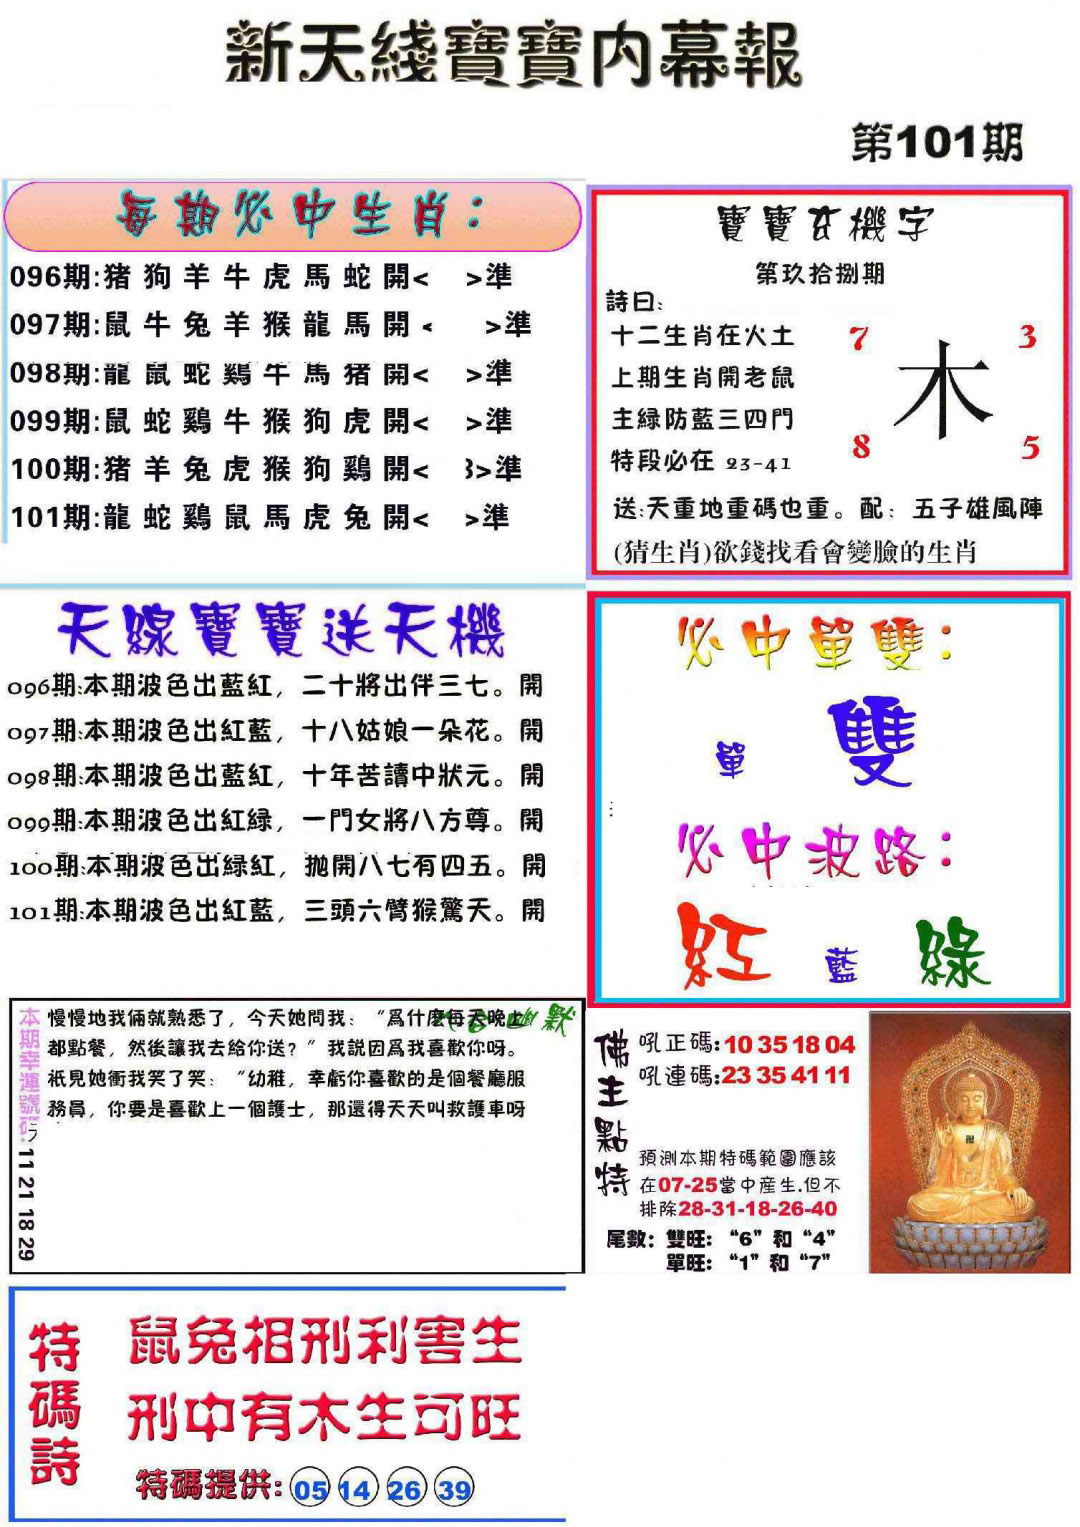 新天綫寶寶内幕報
第101期
每期必中生肖：
096期:猪狗羊牛虎馬蛇開< >準
097期:鼠牛兔羊猴龍馬開< >準
098期:龍鼠蛇鷄牛馬猪開< >準
099期:鼠蛇鷄牛猴狗虎開< >準
100期:猪羊兔虎猴狗鷄開< >準
101期:龍蛇鷄鼠馬虎兔開< >準
寶寶玄機字
第玖拾捌期
詩曰:
十二生肖在火土
上期生肖開老鼠
主緑防藍三四門
特段必在 23-41
7 3
木
8 5
送:天重地重碼也重。配：五子雄風陣
(猜生肖)欲錢找看會變臉的生肖
天線寶寶送天機
096期:本期波色出藍紅，二十將出伴三七。開
097期:本期波色出紅藍，十八姑娘一朵花。開
098期:本期波色出藍紅，十年苦讀中狀元。開
099期:本期波色出紅緑，一門女將八方尊。開
100期:本期波色出緑紅，拋開八七有四五。開
101期:本期波色出紅藍，三頭六臂猴驚天。開
必中單雙：
單 雙
必中波路：
紅 藍 綠
本期幸運號碼:
11 21 18 29
幽默
慢慢地我倆就熟悉了，今天她問我：“爲什麽每天晚上
都點餐，然後讓我去給你送？”我説因爲我喜歡你呀。
衹見她衝我笑了笑：“幼稚，幸虧你喜歡的是個餐廳服
務員，你要是喜歡上一個護士，那還得天天叫救護車呀
佛主點特
吼正碼:10 35 18 04
吼連碼:23 35 41 11
預測本期特碼範圍應該
在07-25當中産生.但不
排除28-31-18-26-40
尾數：雙旺：“6”和“4”
單旺：“1”和“7”
特碼詩
鼠兔相刑利害生
刑中有木生可旺
特碼提供: 05 14 26 39